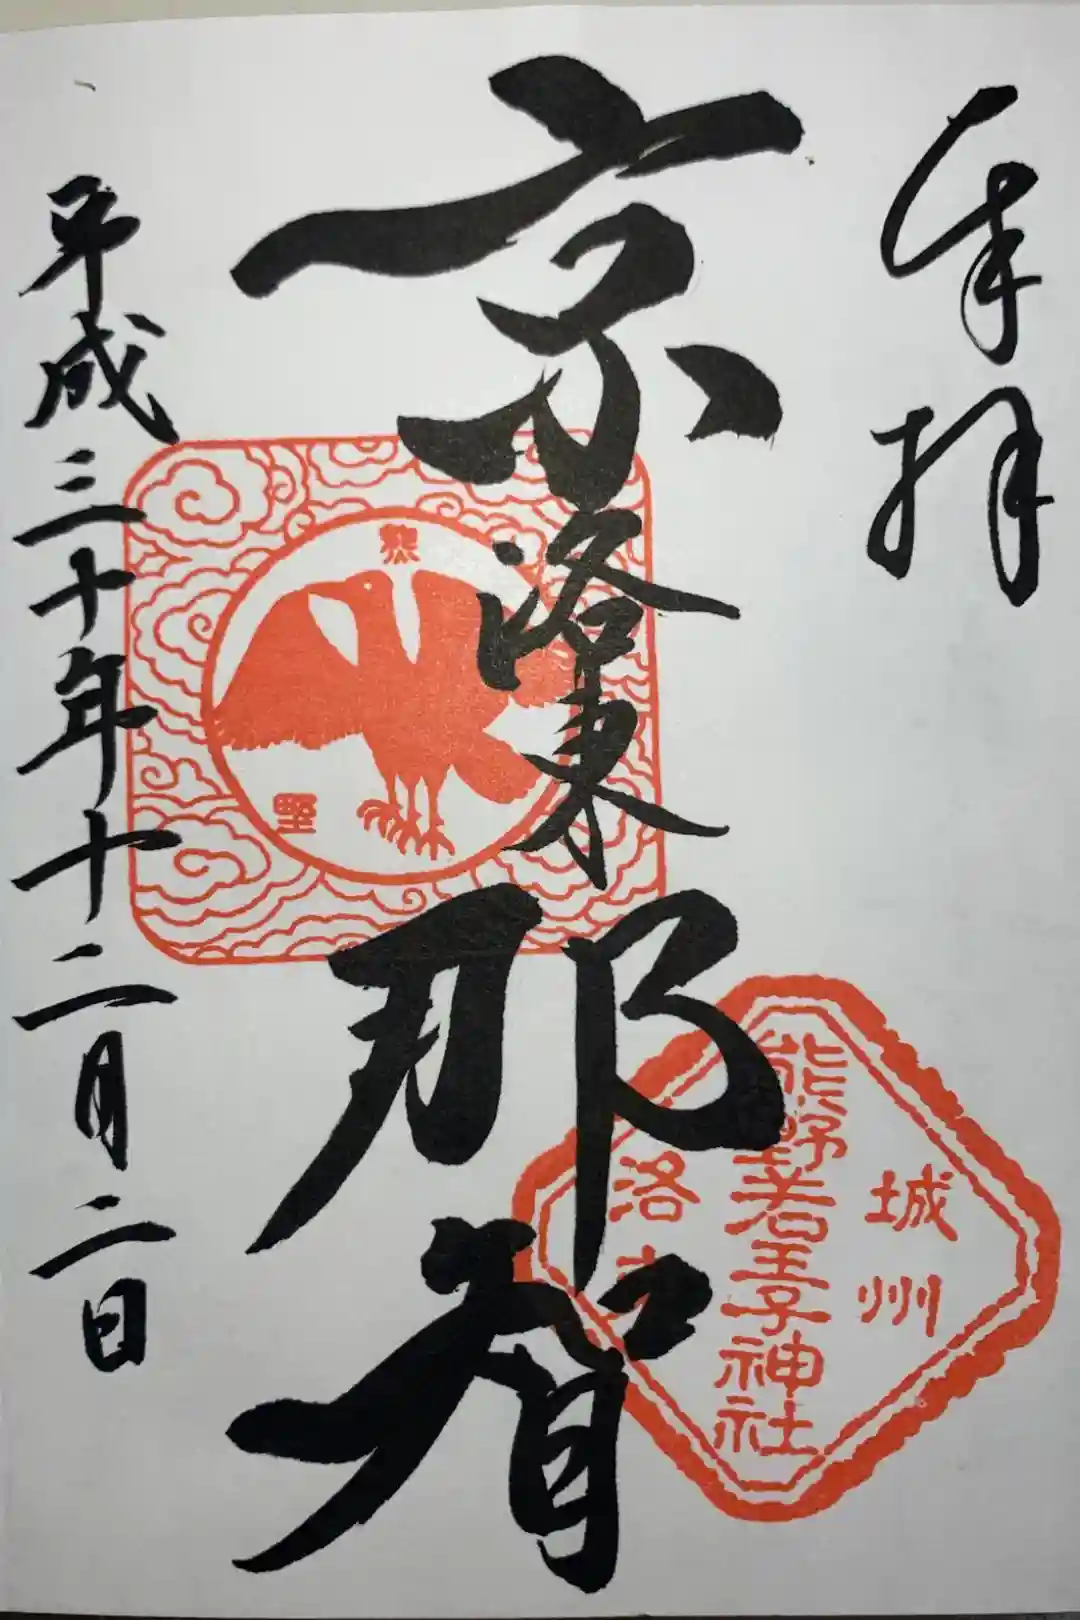 奉拝
京洛東那智
平成三十年十二月二日
熊
野
城州
熊野若王子神社
洛